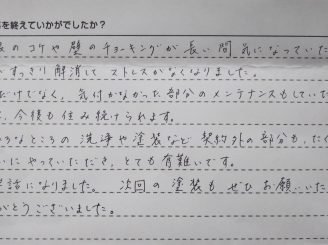 を終えていかがでしたか?
のコケや壁のチョーキングが長い間気になっていた
すっきり解消して ストレスがなくなりました。
だけでなく、気付かなかった部分のメンテナンスもしていた
、今後も住み続けられます。
なところの洗浄や塗装など 契約外の部分も、たく
いにやっていただき、とても有難いです。
話になりました。 次回の塗装も ぜひお願いいた
がとうございました。